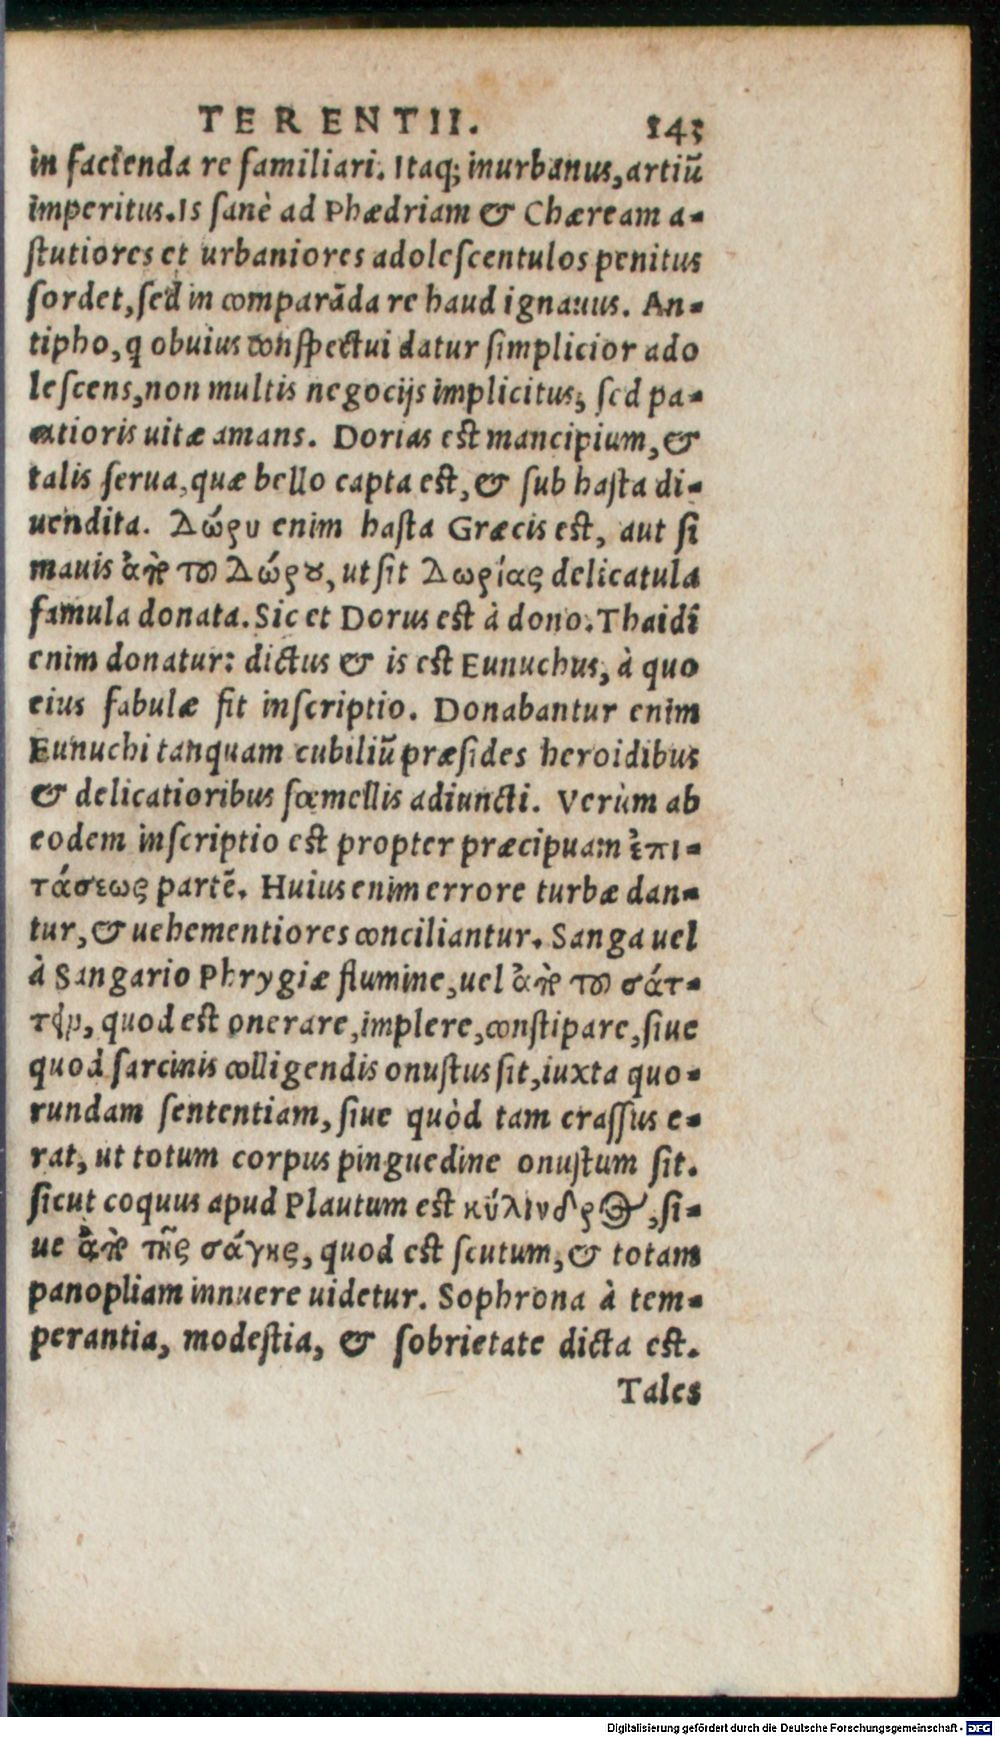 TERENTII. 143
in facienda re familiari. Itaq; inurbanus, artiū
imperitus. Is sanè ad Phædriam & Chæream a-
stutiores et urbaniores adolescentulos penitus
sordet, sed in comparāda re haud ignauus. An-
tipho, q obuius conspectui datur simplicior ado
lescens, non multis negocijs implicitus, sed pa-
catioris uitæ amans. Dorias est mancipium, &
talis serua, quæ bello capta est, & sub hasta di-
uendita. Δώρυ enim hasta Græcis est, aut si
mauis ἀπὸ τοῦ Δώρου, ut sit Δωρίας delicatula
famula donata. Sic et Dorus est à dono. Thaidi
enim donatur: dictus & is est Eunuchus, à quo
eius fabulæ fit inscriptio. Donabantur enim
Eunuchi tanquam cubiliū præsides heroidibus
& delicatioribus fœmellis adiuncti. Verùm ab
eodem inscriptio est propter præcipuam ἐπι-
τάσεως partē. Huius enim errore turbæ dan-
tur, & uehementiores conciliantur. Sanga uel
à Sangario Phrygiæ flumine, uel ἀπὸ τοῦ σάτ-
τειν, quod est onerare, implere, constipare, siue
quod sarcinis colligendis onustus sit, iuxta quo-
rundam sententiam, siue quòd tam crassus e-
rat, ut totum corpus pinguedine onustum sit.
sicut coquus apud Plautum est κύλινδρος, si-
ue ἀπὸ τῆς σάγης, quod est scutum, & totam
panopliam innuere uidetur. Sophrona à tem-
perantia, modestia, & sobrietate dicta est.
Tales
Digitalisierung gefördert durch die Deutsche Forschungsgemeinschaft - DFG